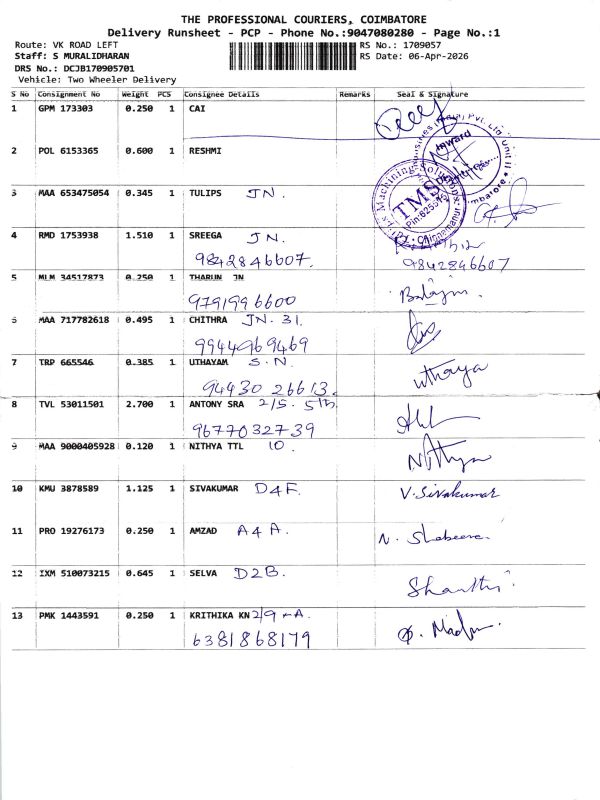 THE PROFESSIONAL COURIERS, COIMBATORE
Delivery Runsheet - PCP - Phone No.:9047080280 - Page No.:1
Route: VK ROAD LEFT
Staff: S MURALIDHARAN
DRS No.: DCJB170905701
Vehicle: Two Wheeler Delivery
RS No.: 1709057
RS Date: 06-Apr-2026
S No Consignment No Weight PCS Consignee Details Remarks Seal & Signature
1 GPM 173303 0.250 1 CAI
2 POL 6153365 0.600 1 RESHMI
Inward
3 MAA 653475054 0.345 1 TULIPS JN.
TMS
4 RMD 1753938 1.510 1 SREEGA JN.
9842846607. 9842846607
5 MLM 34517873 0.250 1 THARUN JN
9791996600
6 MAA 717782618 0.495 1 CHITHRA JN. 31.
9944969469
7 TRP 665546 0.385 1 UTHAYAM S.N. Uthaya
94430 26613.
8 TVL 53011501 2.700 1 ANTONY SRA 2/5.
9677032739
9 MAA 9000405928 0.120 1 NITHYA TTL 10. Nithya
10 KMU 3878589 1.125 1 SIVAKUMAR D4F. V. Sivakumar
11 PRO 19276173 0.250 1 AMZAD A4A. N. Shabeera
12 IXM 510073215 0.645 1 SELVA D2B. Shanthi
13 PMK 1443591 0.250 1 KRITHIKA KN 2/9 -A.
6381868179